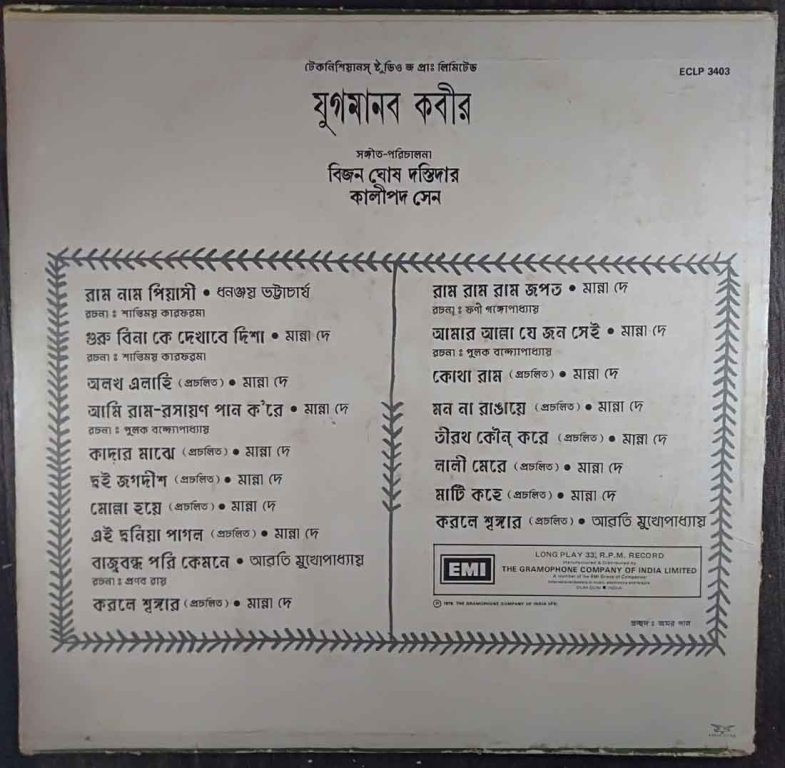 টেকনিশিয়ানস্ ষ্টুডিও জ প্রাঃ লিমিটেড
ECLP 3403
যুগমানব কবীর
সঙ্গীত-পরিচালনা
বিজন ঘোষ দস্তিদার
কালীপদ সেন
রাম নাম পিয়াসী • ধনঞ্জয় ভট্টাচার্য
রচনা : শান্তিময় কারফরমা
গুরু বিনা কে দেখাবে দিশা • মান্না দে
রচনা : শান্তিময় কারফরমা
অলখ এলাহি (প্রচলিত) • মান্না দে
আমি রাম-রসায়ণ পান ক'রে • মান্না দে
রচনা : পুলক বন্দ্যোপাধ্যায়
কাদার মাঝে (প্রচলিত) • মান্না দে
দুই জগদীশ (প্রচলিত) • মান্না দে
মোল্লা হয়ে (প্রচলিত) • মান্না দে
এই দুনিয়া পাগল (প্রচলিত) • মান্না দে
বাজুবন্ধ পরি কেমনে • আরতি মুখোপাধ্যায়
রচনা : প্রণব রায়
করলে শৃঙ্গার (প্রচলিত) • মান্না দে
রাম রাম রাম জপত • মান্না দে
রচনা : ফণী গঙ্গোপাধ্যায়
আমার আল্লা যে জন সেই • মান্না দে
রচনা : পুলক বন্দ্যোপাধ্যায়
কোথা রাম (প্রচলিত) • মান্না দে
মন না রাঙায়ে (প্রচলিত) • মান্না দে
তীরথ কৌন্ করে (প্রচলিত) • মান্না দে
লালী মেরে (প্রচলিত) • মান্না দে
মাটি কহে (প্রচলিত) • মান্না দে
করলে শৃঙ্গার (প্রচলিত) • আরতি মুখোপাধ্যায়
EMI
LONG PLAY 33⅓ R.P.M. RECORD
Manufactured & Distributed by
THE GRAMOPHONE COMPANY OF INDIA LIMITED
A member of the EMI Group of Companies
International leaders in music, electronics and leisure
DUM DUM ■ INDIA
THE GRAMOPHONE COMPANY OF INDIA LTD.
প্রচ্ছদ : অমর পাল